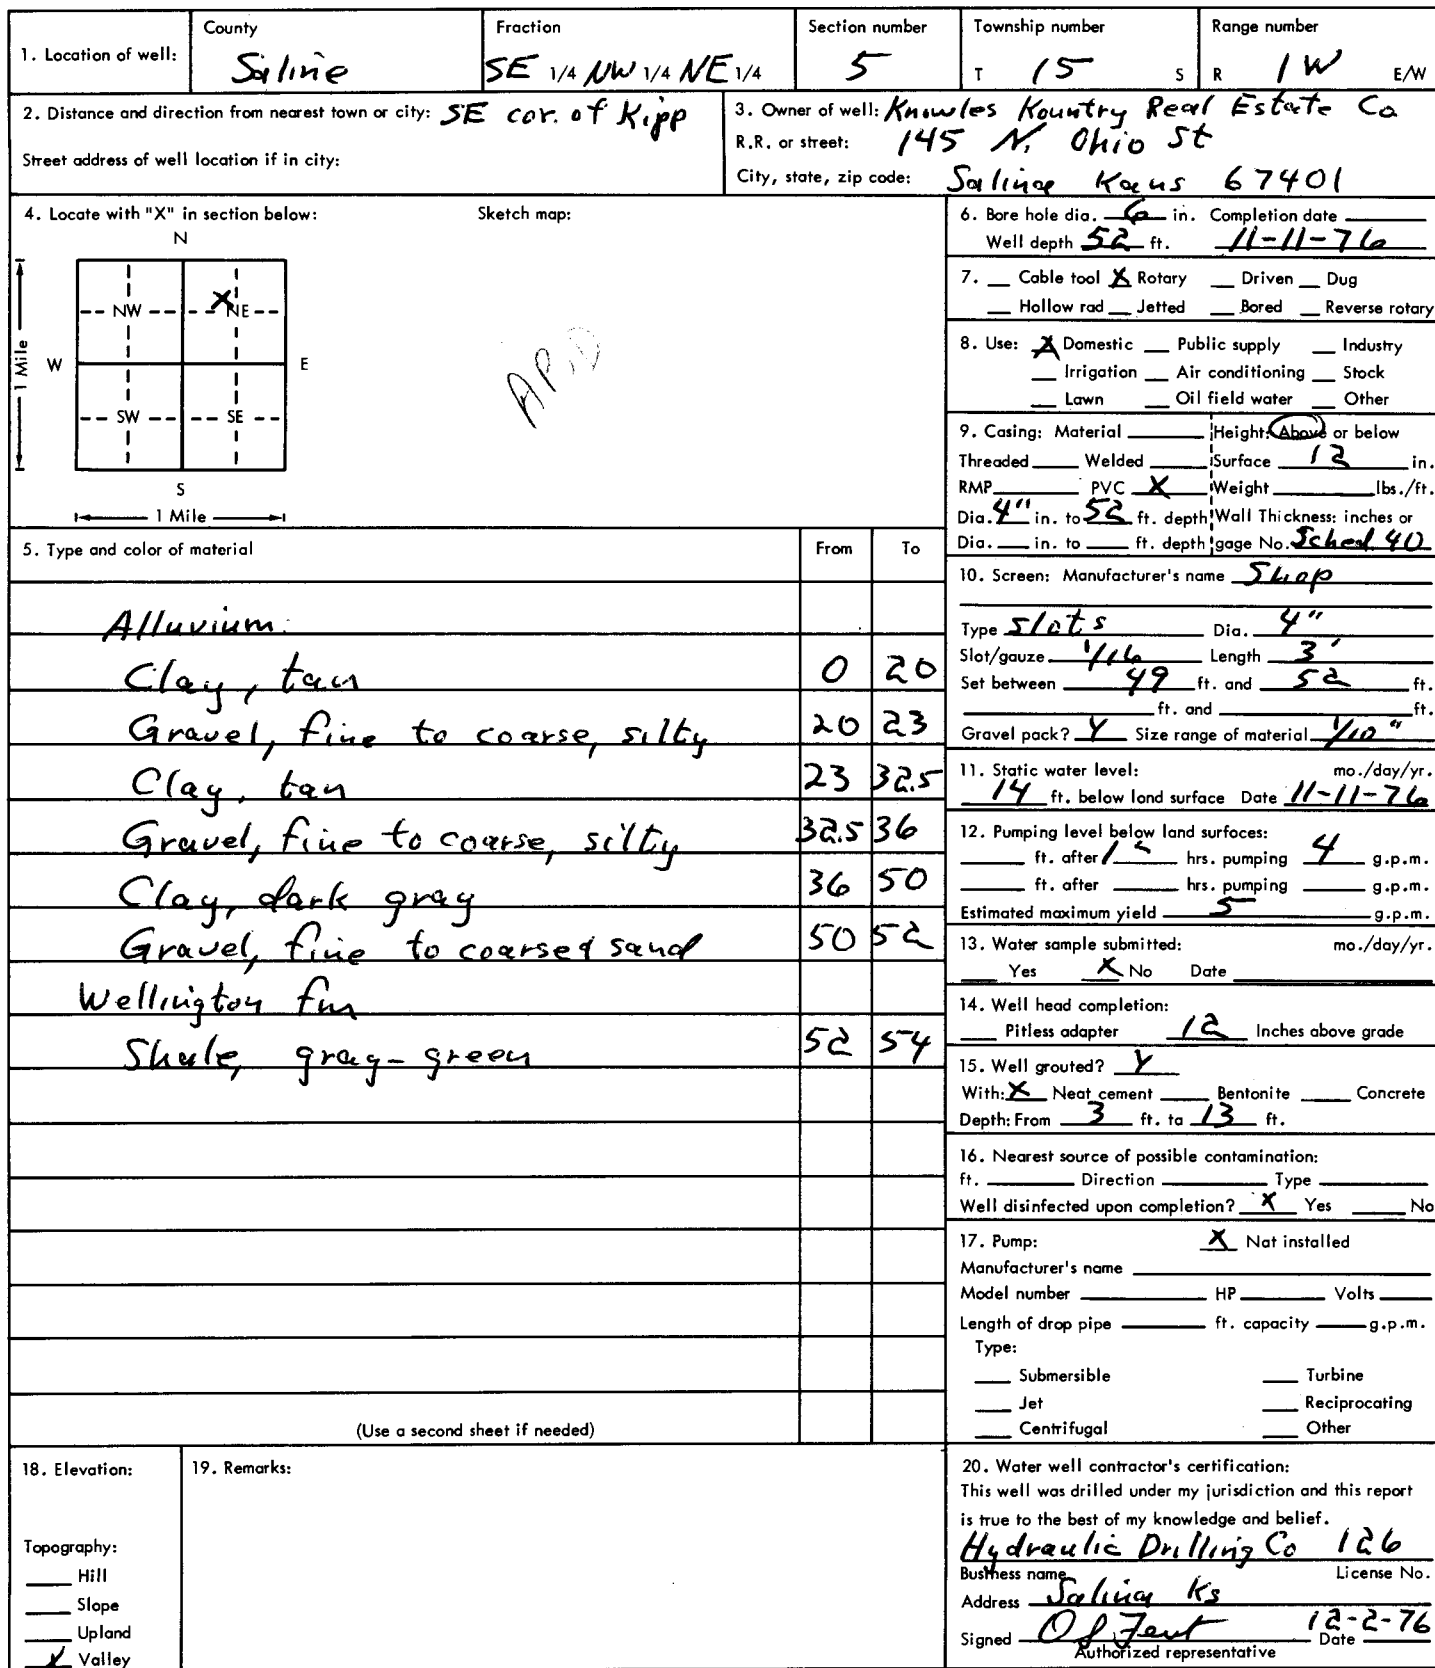 1. Location of well:
County
Saline
Fraction
SE 1/4 NW 1/4 NE 1/4
Section number
5
Township number
T 15 S
Range number
R 1W E/W
2. Distance and direction from nearest town or city: SE cor. of Kipp
Street address of well location if in city:
3. Owner of well: Knowles Kountry Real Estate Co
R.R. or street: 145 N. Ohio St
City, state, zip code: Salina Kans 67401
4. Locate with "X" in section below:
Sketch map:
N
X
NW NE
W E
1 Mile
SW SE
S
1 Mile
5. Type and color of material From To
Alluvium
Clay, tan 0 20
Gravel, fine to coarse, silty 20 23
Clay, tan 23 32.5
Gravel, fine to coarse, silty 32.5 36
Clay, dark gray 36 50
Gravel, fine to coarse & sand 50 52
Wellington fm
Shale, gray-green 52 54
(Use a second sheet if needed)
6. Bore hole dia. 6 in. Completion date
Well depth 52 ft. 11-11-76
7. __ Cable tool X Rotary __ Driven __ Dug
__ Hollow rad __ Jetted __ Bored __ Reverse rotary
8. Use: X Domestic __ Public supply __ Industry
__ Irrigation __ Air conditioning __ Stock
__ Lawn __ Oil field water __ Other
9. Casing: Material ____ Height: Above or below
Threaded ____ Welded ____ Surface 12 in.
RMP ____ PVC X Weight ____ lbs./ft.
Dia. 4" in. to 52 ft. depth Wall Thickness: inches or
Dia. __ in. to __ ft. depth gage No. Sched 40
10. Screen: Manufacturer's name Shop
Type slots Dia. 4"
Slot/gauze 1/16 Length 3'
Set between 49 ft. and 52 ft.
____ ft. and ____ ft.
Gravel pack? Y Size range of material 1/10"
11. Static water level: mo./day/yr.
14 ft. below land surface Date 11-11-76
12. Pumping level below land surfaces:
____ ft. after hrs. pumping 4 g.p.m.
____ ft. after ____ hrs. pumping ____ g.p.m.
Estimated maximum yield 5 g.p.m.
13. Water sample submitted: mo./day/yr.
__ Yes X No Date ____
14. Well head completion:
__ Pitless adapter 12 Inches above grade
15. Well grouted? Y
With: X Neat cement ____ Bentonite ____ Concrete
Depth: From 3 ft. to 13 ft.
16. Nearest source of possible contamination:
ft. ____ Direction ____ Type ____
Well disinfected upon completion? X Yes ____ No
17. Pump: X Nat installed
Manufacturer's name ____
Model number ____ HP ____ Volts ____
Length of drop pipe ____ ft. capacity ____ g.p.m.
Type:
__ Submersible __ Turbine
__ Jet __ Reciprocating
__ Centrifugal __ Other
18. Elevation:
Topography:
__ Hill
__ Slope
__ Upland
X Valley
19. Remarks:
20. Water well contractor's certification:
This well was drilled under my jurisdiction and this report
is true to the best of my knowledge and belief.
Hydraulic Drilling Co 126
Business name License No.
Address Salina Ks
Signed O S Fent 12-2-76
Date
Authorized representative